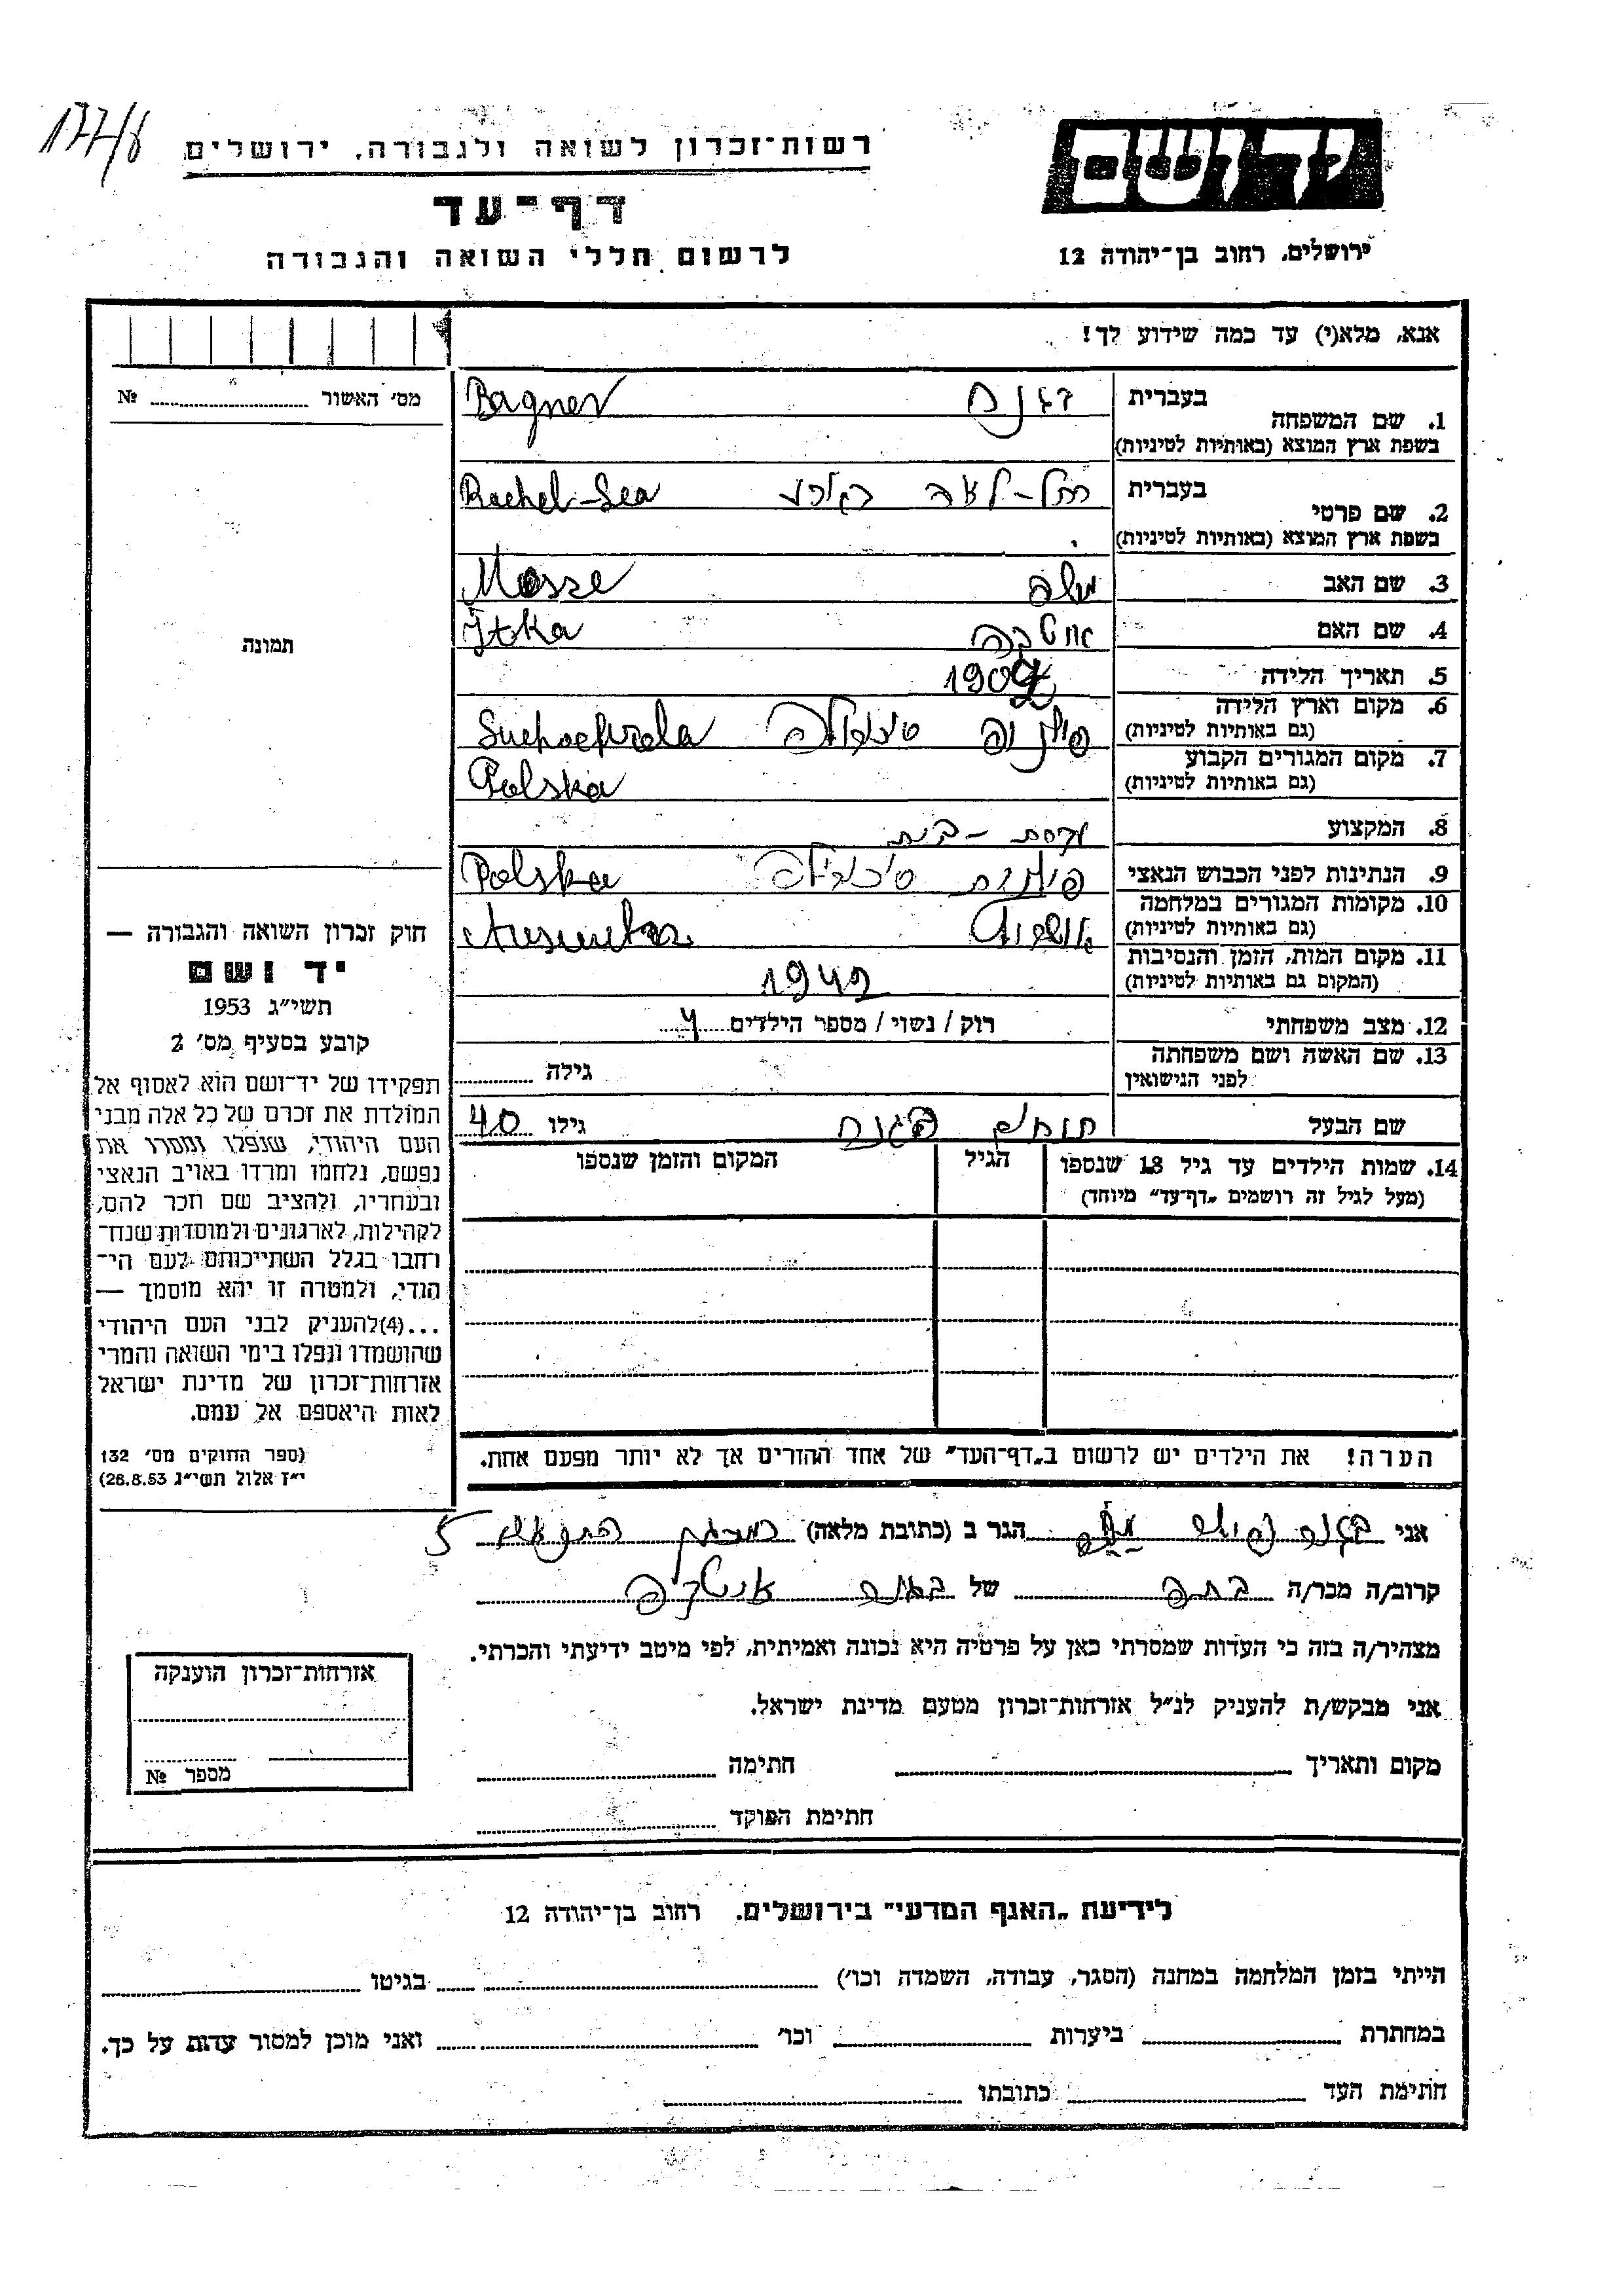 רשות־זכרון לשואה ולגבורה, ירושלים
דף־עד
לרשום חללי השואה והגבורה
יד ושם
ירושלים, רחוב בן־יהודה 12
אנא, מלא(י) עד כמה שידוע לך!
מס׳ האשור № 
תמונה
1. שם המשפחה בעברית
בשפת ארץ המוצא (באותיות לטיניות)
Bagner
2. שם פרטי בעברית רחל-לאה
בשפת ארץ המוצא (באותיות לטיניות)
Rachel-Lea
3. שם האב משה
4. שם האם Itka
5. תאריך הלידה
6. מקום וארץ הלידה
(גם באותיות לטיניות)
7. מקום המגורים הקבוע
(גם באותיות לטיניות)
Polska
8. המקצוע עקרת-בית
9. הנתינות לפני הכבוש הנאצי Polska
10. מקומות המגורים במלחמה
(גם באותיות לטיניות)
11. מקום המות, הזמן והנסיבות
(המקום גם באותיות לטיניות)
1942
12. מצב משפחתי רוק / נשוי / מספר הילדים 4
13. שם האשה ושם משפחתה
לפני הנישואין
גילה
שם הבעל
גילו 40
14. שמות הילדים עד גיל 18 שנספו
(מעל לגיל זה רושמים „דף־עד” מיוחד)
הגיל
המקום והזמן שנספו
הערה! את הילדים יש לרשום ב„דף־העד” של אחד ההורים אך לא יותר מפעם אחת.
חוק זכרון השואה והגבורה —
יד ושם
תשי״ג 1953
קובע בסעיף מס׳ 2
תפקידו של יד־ושם הוא לאסוף אל
המולדת את זכרם של כל אלה מבני
העם היהודי, שנפלו ומסרו את
נפשם, נלחמו ומרדו באויב הנאצי
ובעוזריו, ולהציב שם וזכר להם,
לקהילות, לארגונים ולמוסדות שנח־
רחבו בגלל השתייכותם לעם הי־
הודי, ולמטרה זו יהא מוסמך —
...(4) להעניק לבני העם היהודי
שהושמדו ונפלו בימי השואה והמרי
אזרחות־זכרון של מדינת ישראל
לאות היאספם אל עמם.
(ספר החוקים מס׳ 132
י״ז אלול תשי״ג 28.8.53)
אני הגר ב (כתובת מלאה) 5
קרוב/ה מכר/ה של
מצהיר/ה בזה כי העדות שמסרתי כאן על פרטיה היא נכונה ואמיתית, לפי מיטב ידיעתי והכרתי.
אני מבקש/ת להעניק לנ״ל אזרחות־זכרון מטעם מדינת ישראל.
מקום ותאריך חתימה
חתימת הפוקד
אזרחות־זכרון הוענקה
מספר №
לידיעת „האגף המדעי” בירושלים, רחוב בן־יהודה 12
הייתי בזמן המלחמה במחנה (הסגר, עבודה, השמדה וכו׳) בגיטו
במחתרת ביערות וכו׳ ואני מוכן למסור עדות על כך.
חתימת העד כתובתו